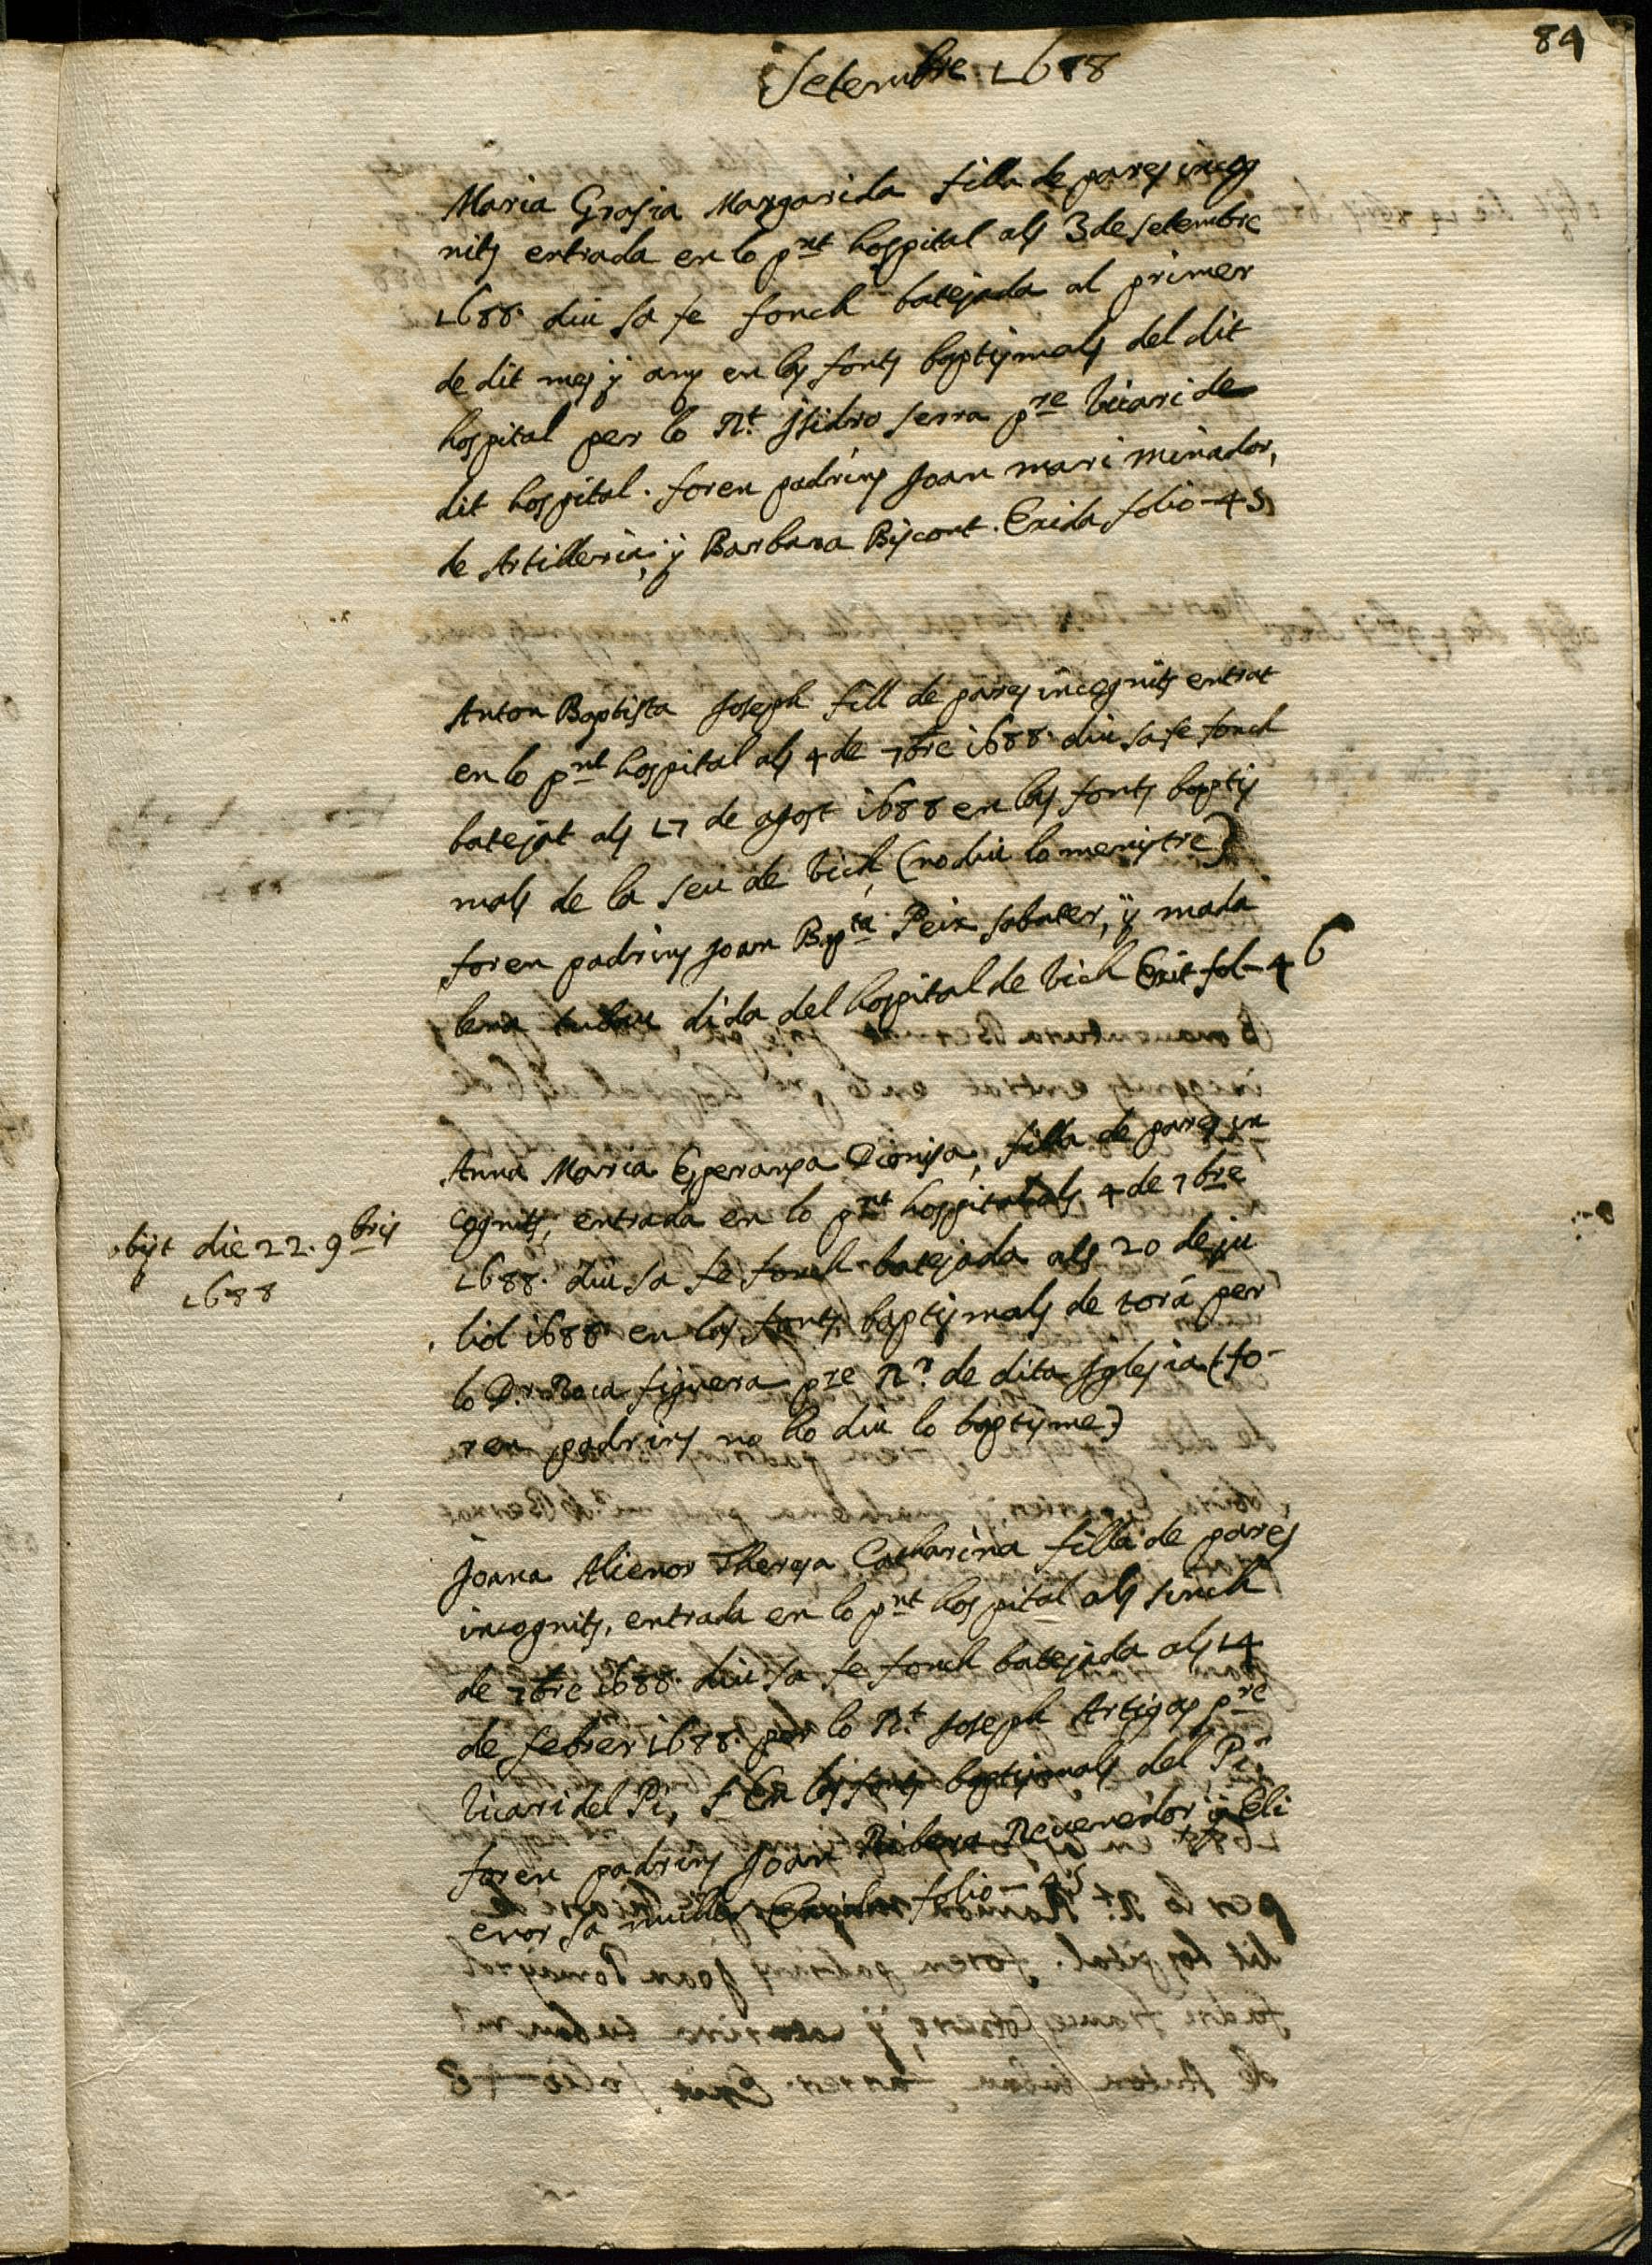 84
Setembre 1688
Maria Grasia Margarida filla de pares incog
nits entrada en lo pnt hospital als 3 de setembre
1688. diu sa fe fonch batejada al primer
de dit mes y any en las fonts baptismals del dit
hospital per lo Rt. Isidro Serra pre vicari de
dit hospital. foren padrins Joan mari minador,
de Artilleria; y Barbara Biscont. Exida folio - 45
Anton Baptista Joseph fill de pares incognits entrat
en lo pnt hospital als 4 de 7bre 1688. diu sa fe fonch
batejat als 17 de agost 1688 en las fonts baptis
mals de la seu de Vich (no diu lo menistre)
foren padrins Joan Bapta Peix sabater, y mada
lena dida del hospital de Vich Exit fol - 46
Anna Maria Esperansa Dionisa, filla de pares in
cognits, entrada en lo pnt hospital als 4 de 7bre
1688. diu sa fe fonch batejada als 20 de ju
liol 1688 en las fonts baptismals de torá per
lo Dr. Roca figuera pre Rr. de dita Iglesia (fo-
ren padrins no ho diu lo baptisme)
obijt die 22. 9bris
1688
Joana Alienor Theresa Catharina filla de pares
incognits, entrada en lo pnt hospital als sinch
de 7bre 1688. diu sa fe fonch batejada als 14
de febrer 1688. per lo Rt. Joseph Artigas pre
Vicari del Pi, En las fonts baptismals del Pi
foren padrins Joan Ribera Revenedor y Eli
enor sa muller. Exida folio - 45